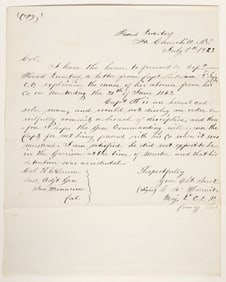 (Copy)
Head Quarters
Ft. Churchill, N.T.
July 5th 1863
Col.
I have the honor to forward to Capt
a letter from Capt
C.C. explaining the reason of his absence from his
Co. on muster day the 30th of June 1863
Capt. is an honest and
man, and would not disobey an order or
wilfully commit a breach of discipline, and
I hope the Gen. Commanding will excuse the
Capt. for not being present with his Co. when it was
mustered. I am satisfied he did not expect to be
in the Garrison at the time of Muster and that his
absence was accidental.
Respectfully
Your Obt. Servt.
(Sign)
Maj. 2d C.C.
Comdg Post
Col. R.C. Drum
Asst. Adjt. Gen
San Francisco
Cal